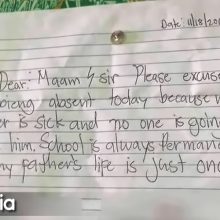 Date: 11/18/20
Dear: Maam / sir Please excuse
being absent today because
er is sick and no one is goin
him. School is always Perman
my father's life is Just one
ia